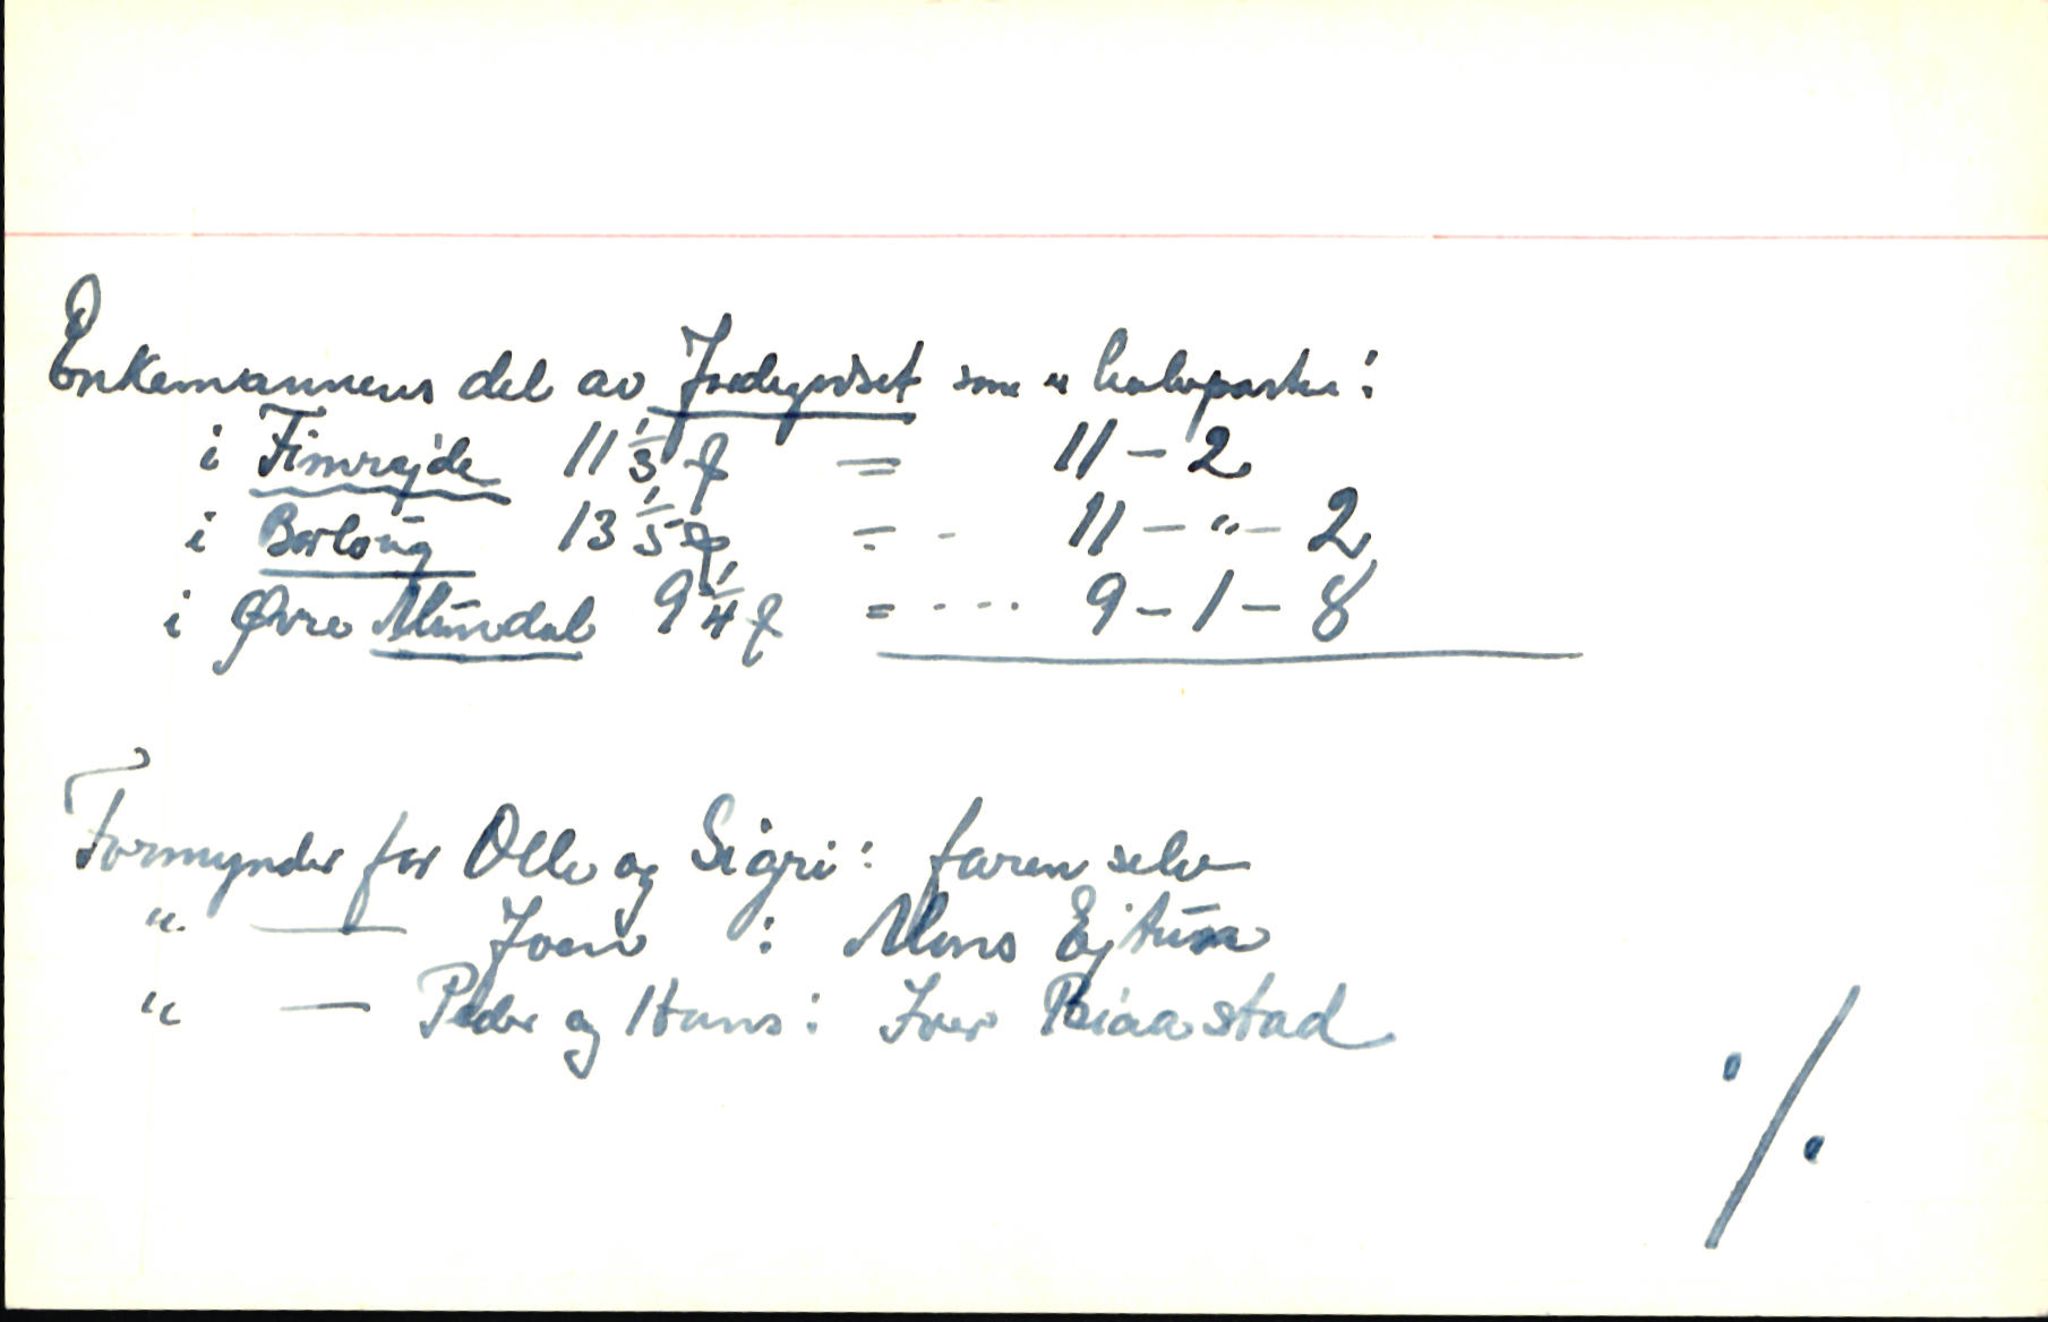 Enkemannens del av Jordegodset som " halvparten:
i Fimrejde 11 1/3 f = 11 - 2
i Borlaug 13 1/5 f = - 11 - " - 2
i Øvre Mundal 9 1/4 f = - - - 9 - 1 - 8
Formynder for Olle og Sigri: faren selv
" — Joen : Mons Ejtun
" — Peder og Hans: Iver Biaastad
./.